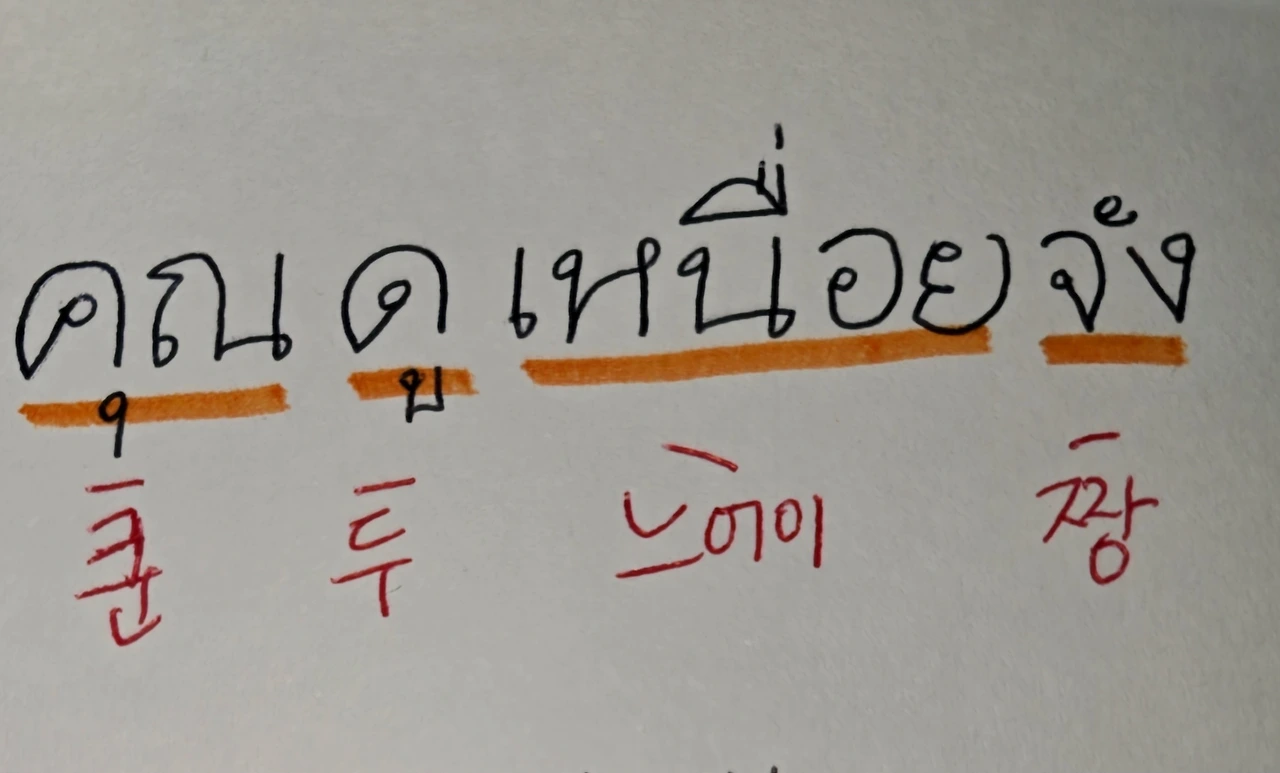 คุณ ดู เหนื่อย จัง
쿤 두 느어이 짱